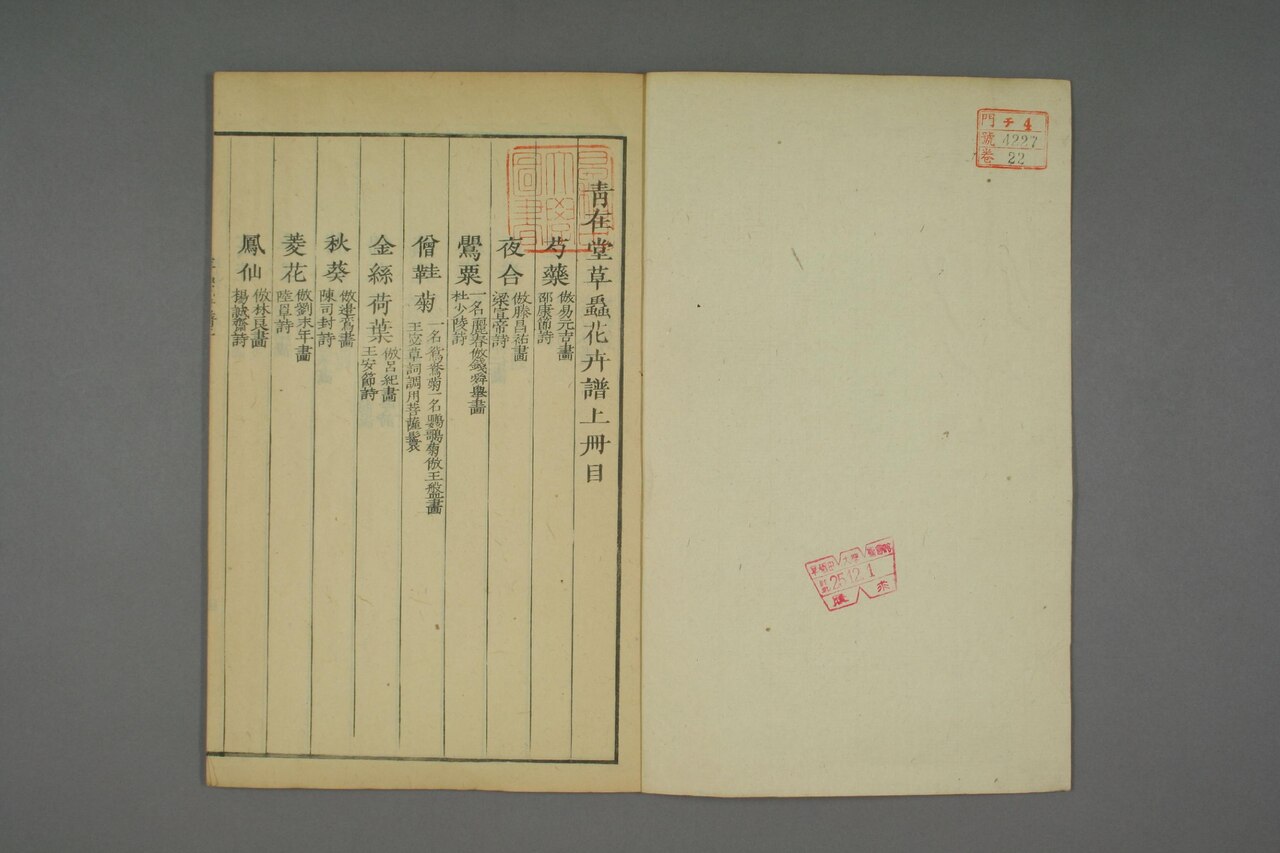 門 チ 4
號 4227
卷 22
早稻田大學圖書
靑在堂草蟲花卉譜上冊目
芍藥 倣易元吉畫
邵康節詩
夜合 倣滕昌祐畫
梁宣帝詩
鸎粟 一名麗春倣錢舜舉畫
杜少陵詩
僧鞋菊 一名鴛鴦菊一名鸚鵡菊倣王盤畫
王宓草詞調用菩薩鬘
金絲荷葉 倣呂紀畫
王安節詩
秋葵 倣邊鸞畫
陳司封詩
菱花 倣劉末年畫
陸阜詩
鳳仙 倣林良畫
楊誠齋詩
25.12.1